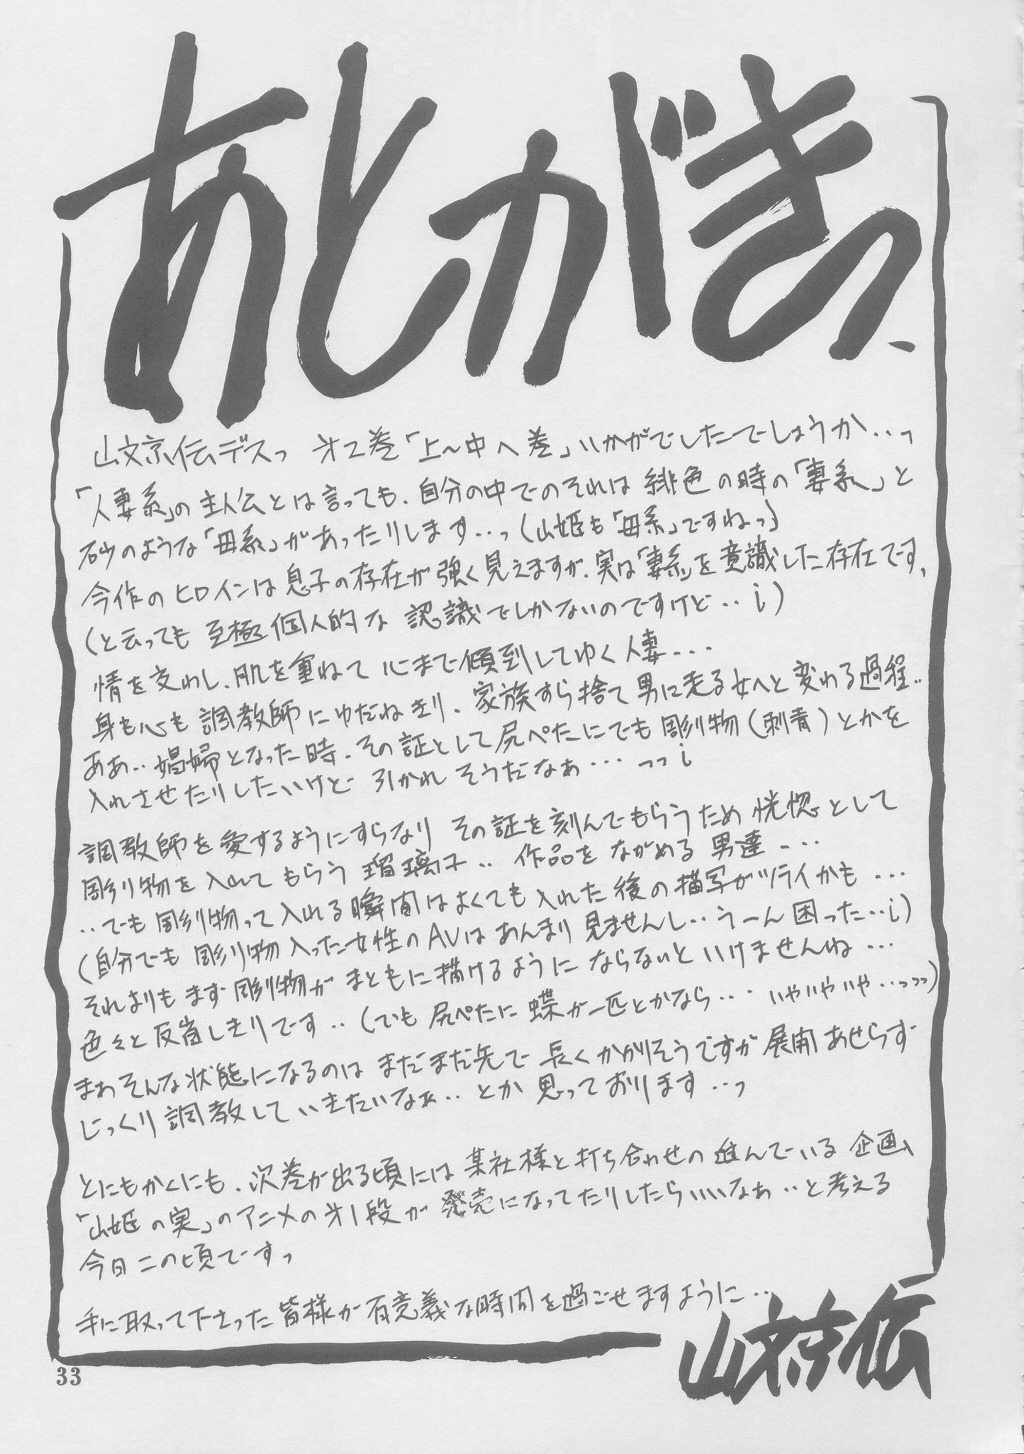 あとがきっ、
山文京伝デスっ 才2巻「上～中へ巻」いかがでしたでしょうか‥っ
「人妻系」の主人公とは言っても、自分の中でのそれは 緋色の時の「妻系」と
砂のような「母系」があったりします…っ(山姫も「母系」ですねっ)
今作のヒロインは息子の存在が強く見えますが、実は「妻系」を意識した存在です、
(と云っても 至極個人的な 認識でしかないのですけど‥i)
情を交わし、肌を重ねて 心まで傾倒してゆく人妻...
身も心も 調教師にゆだねきり、家族すら捨て 男に走る女へと 変わる過程‥
ああ‥娼婦となった時、その証として尻ぺたにでも 彫り物(刺青)とかを
入れさせたりしたいけど 引かれ そうだなぁ... っっi
調教師を愛するようにすらなり その証を刻んでもらうため 恍惚として
彫り物を入れて もらう 瑠璃子‥ 作品を ながめる 男達...
‥でも彫り物って入れる瞬間はよくても入れた後の描写がツライかも...
(自分でも 彫り物入った女性のAVはあんまり見ませんし‥うーん困った‥i)
それよりもまず彫り物が まともに描けるように ならないといけませんね...
色々と反省しきりです‥(でも尻ぺたに 蝶が一匹とかなら... いやいやいや‥っっっ)
まわそんな状態になるのは まだまだ先で 長くかかりそうですが 展開あせらず
じっくり調教していきたいなぁ‥とか 思っております‥っ
とにもかくにも、次巻が出る頃には 某社様と打ち合わせの 進んでいる 企画、
「山姫の実」のアニメの才1段が 発売になってたりしたらいいなぁ‥と考える
今日この頃ですっ
手に取って下さった皆様が有意義な時間を過ごせますように‥
山文京伝
33